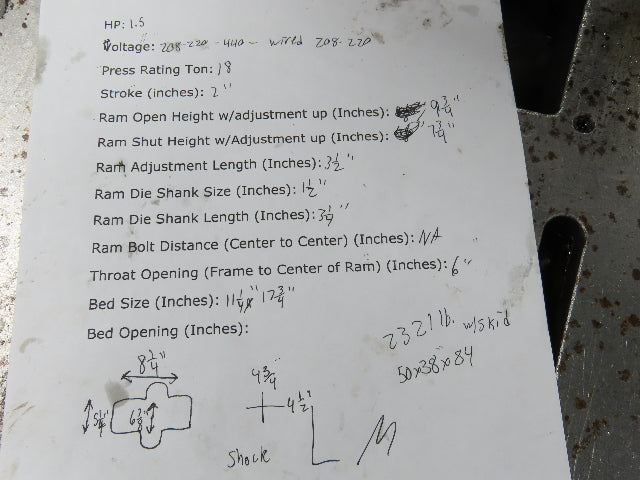 HP: 1.5
Voltage: 208-220 - 440 - wired 208-220
Press Rating Ton: 18
Stroke (inches): 2"
Ram Open Height w/adjustment up (Inches): 9 3/4"
Ram Shut Height w/Adjustment up (Inches): 7 3/4"
Ram Adjustment Length (Inches): 3 1/2"
Ram Die Shank Size (Inches): 1 1/2"
Ram Die Shank Length (Inches): 3 1/4"
Ram Bolt Distance (Center to Center) (Inches): NA
Throat Opening (Frame to Center of Ram) (Inches): 6"
Bed Size (Inches): 11 1/4" 17 3/4"
Bed Opening (Inches):
2321 lb. w/skid
50x38x84
8 1/4"
4 3/4
4 1/2"
Shock
M